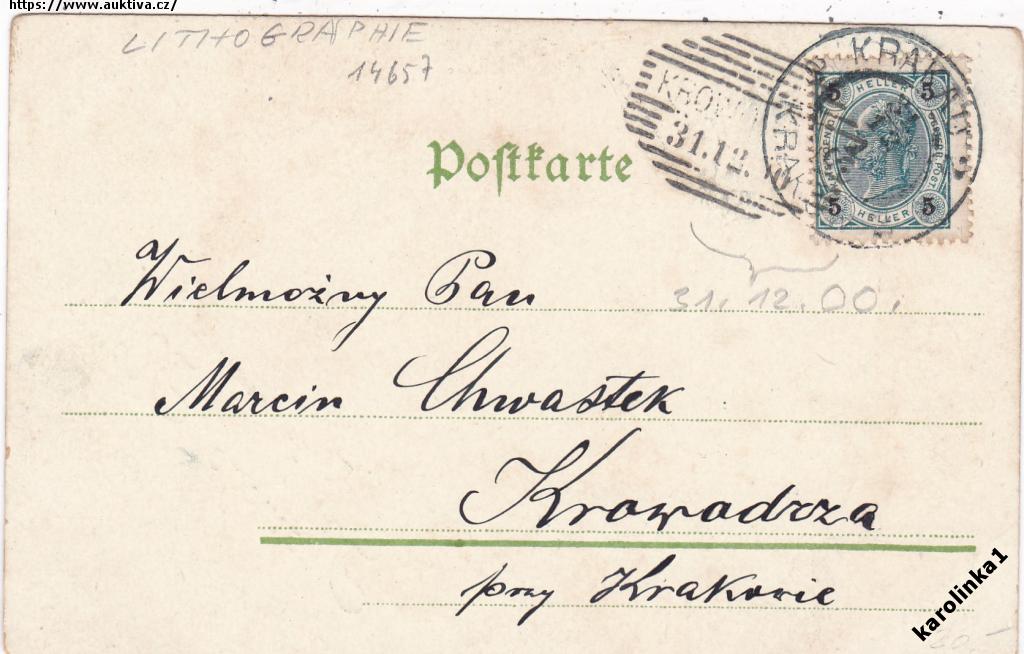 https://www.auktiva.cz/
LITHOGRAPHIE
14657
Postkarte
KROWO
31.12.
KRAKAU
5 HELLER 5
5 HELLER 5
31.12.00.
Wielmożny Pan
Marcin Chwastek
Krowodrza
przy Krakowie
karolinka1